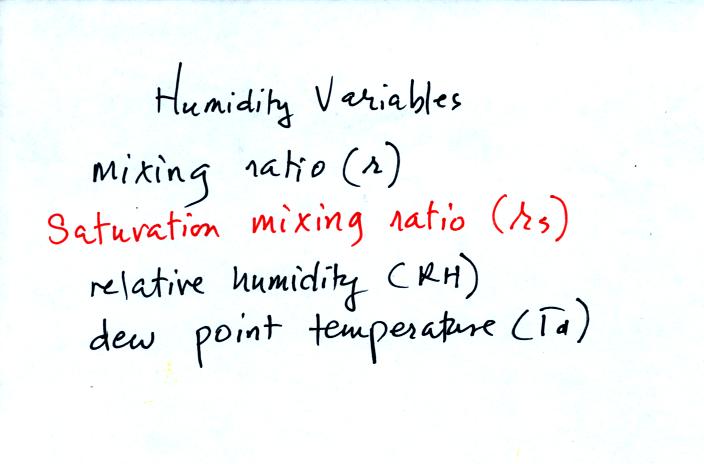 Humidity Variables
mixing ratio (r)
Saturation mixing ratio (rs)
relative humidity (RH)
dew point temperature (Td)